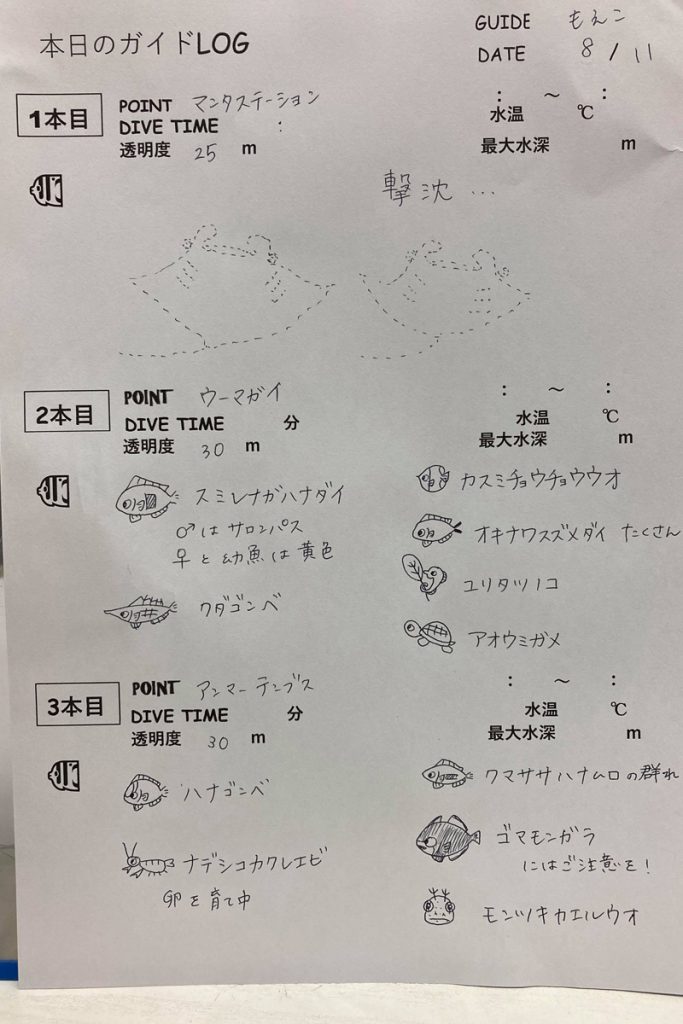 本日のガイドLOG
GUIDE もえこ
DATE 8/11
1本目
POINT マンタステーション
DIVE TIME :
: ~ :
水温 ℃
透明度 25 m
最大水深 m
撃沈…
2本目
POINT ウーマガイ
DIVE TIME 分
: ~ :
水温 ℃
透明度 30 m
最大水深 m
スミレナガハナダイ
♂はサロンパス
♀と幼魚は黄色
クダゴンベ
カスミチョウチョウウオ
オキナワスズメダイ たくさん
ユリタツノコ
アオウミガメ
3本目
POINT アンマーテンブス
DIVE TIME 分
: ~ :
水温 ℃
透明度 30 m
最大水深 m
ハナゴンベ
ナデシコカクレエビ
卵を育て中
クマササハナムロの群れ
ゴマモンガラ
にはご注意を!
モンツキカエルウオ